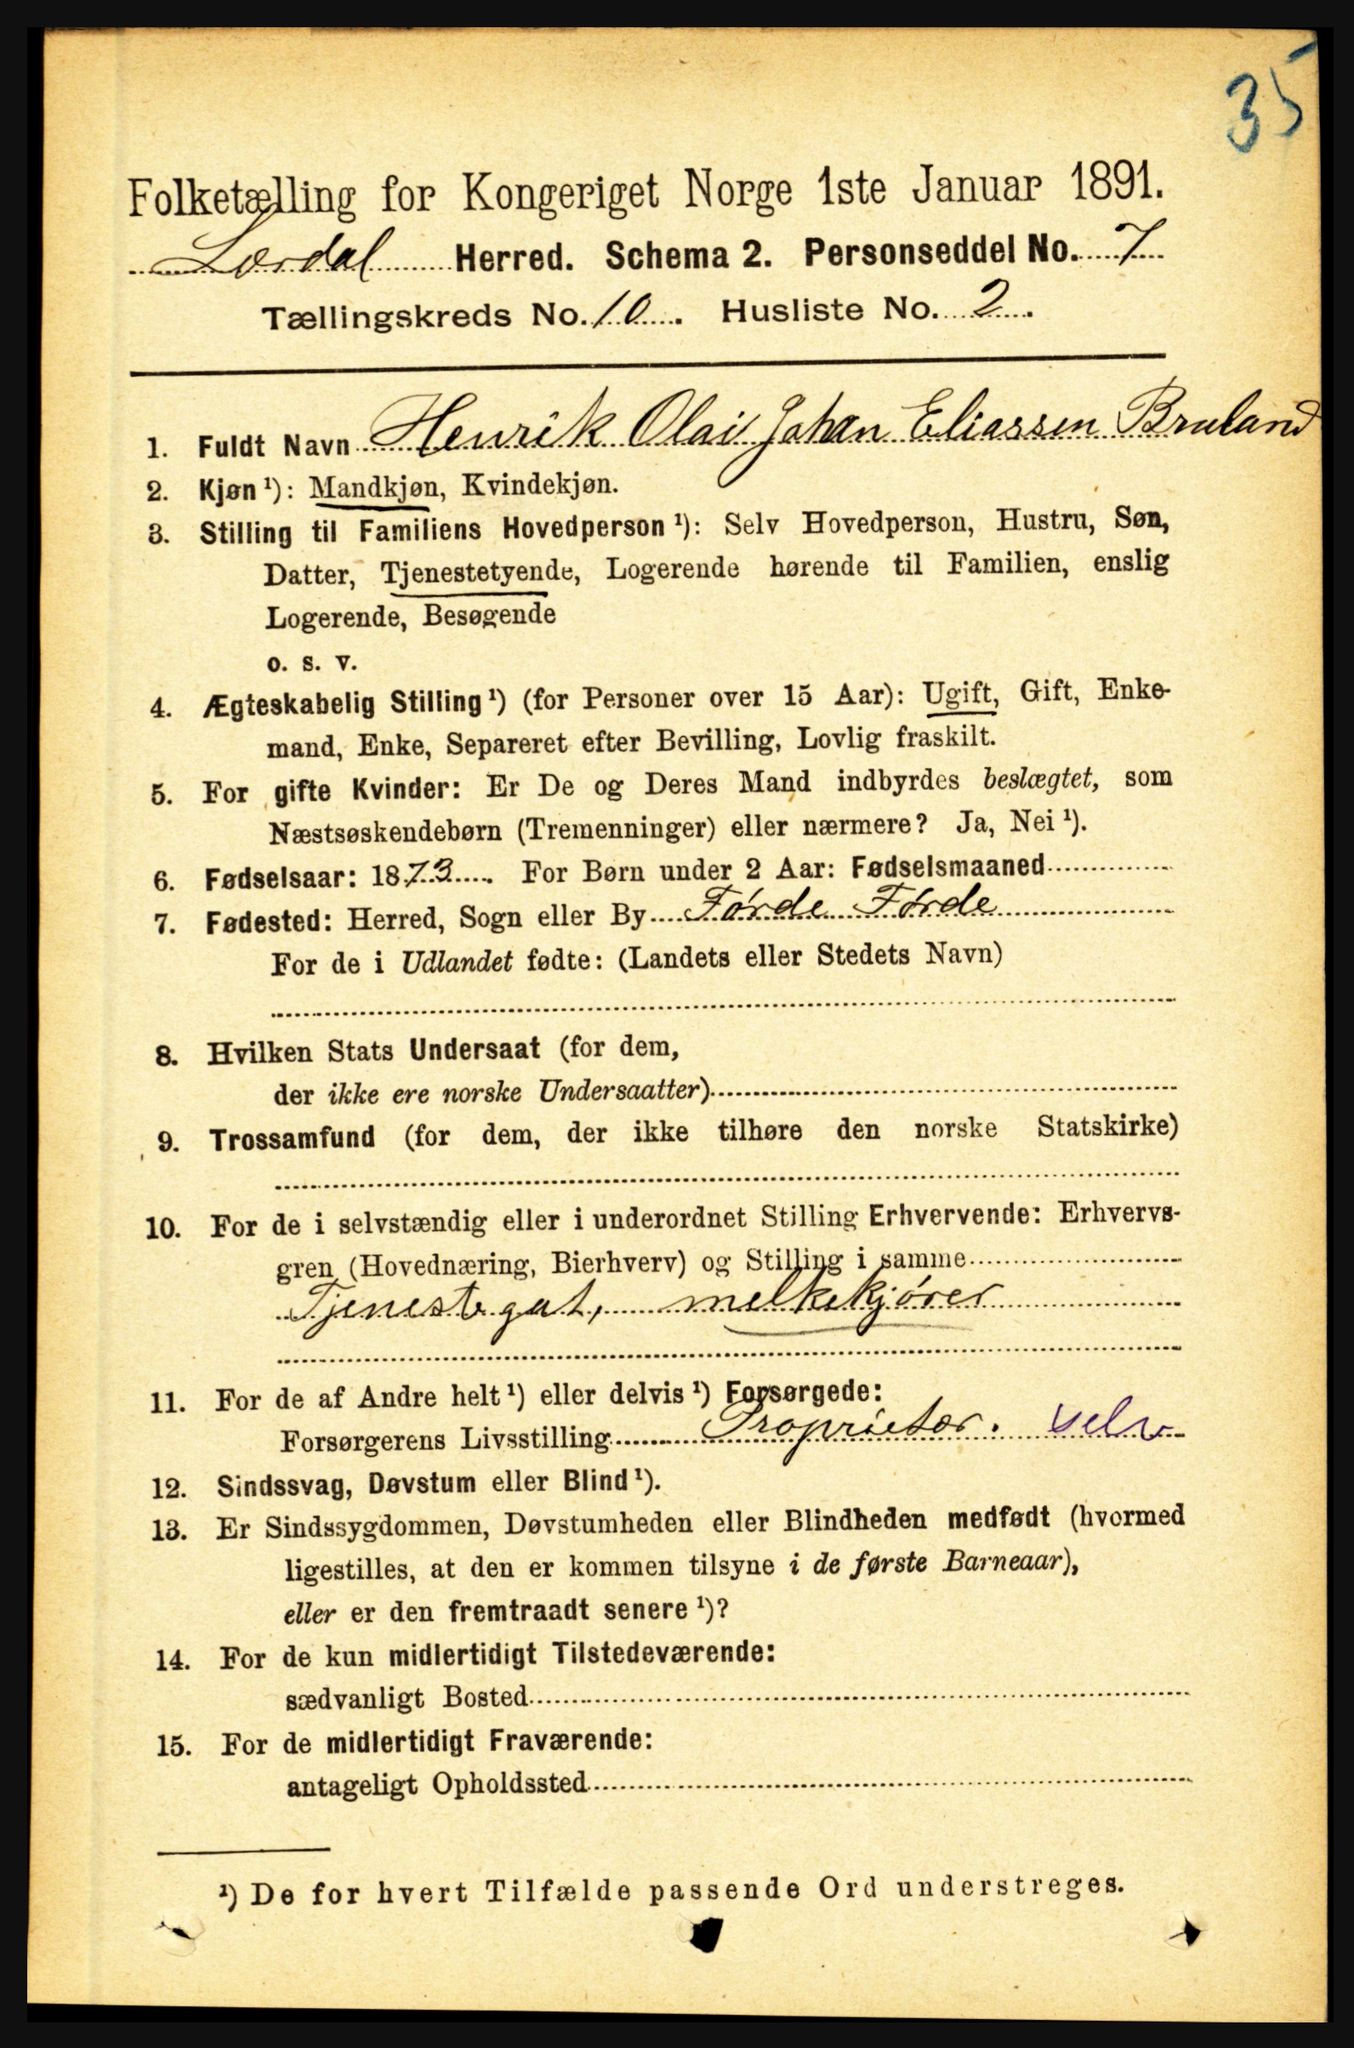 35
Folketælling for Kongeriget Norge 1ste Januar 1891.
Lærdal Herred. Schema 2. Personseddel No. 7
Tællingskreds No. 10. Husliste No. 2.
1. Fuldt Navn Henrik Olai Johan Eliassen Bruland
2. Kjøn¹): Mandkjøn, Kvindekjøn.
3. Stilling til Familiens Hovedperson¹): Selv Hovedperson, Hustru, Søn,
Datter, Tjenestetyende, Logerende hørende til Familien, enslig
Logerende, Besøgende
o. s. v.
4. Ægteskabelig Stilling¹) (for Personer over 15 Aar): Ugift, Gift, Enke-
mand, Enke, Separeret efter Bevilling, Lovlig fraskilt.
5. For gifte Kvinder: Er De og Deres Mand indbyrdes beslægtet, som
Næstsøskendebørn (Tremenninger) eller nærmere? Ja, Nei¹).
6. Fødselsaar: 1873. For Børn under 2 Aar: Fødselsmaaned
7. Fødested: Herred, Sogn eller By Førde Førde
For de i Udlandet fødte: (Landets eller Stedets Navn)
8. Hvilken Stats Undersaat (for dem,
der ikke ere norske Undersaatter)
9. Trossamfund (for dem, der ikke tilhøre den norske Statskirke)
10. For de i selvstændig eller i underordnet Stilling Erhvervende: Erhvervs-
gren (Hovednæring, Bierhverv) og Stilling i samme
Tjenestegut, melkekjører
11. For de af Andre helt¹) eller delvis¹) Forsørgede:
Forsørgerens Livsstilling Proprietær. selv
12. Sindssvag, Døvstum eller Blind¹).
13. Er Sindssygdommen, Døvstumheden eller Blindheden medfødt (hvormed
ligestilles, at den er kommen tilsyne i de første Barneaar),
eller er den fremtraadt senere¹)?
14. For de kun midlertidigt Tilstedeværende:
sædvanligt Bosted
15. For de midlertidigt Fraværende:
antageligt Opholdssted
¹) De for hvert Tilfælde passende Ord understreges.